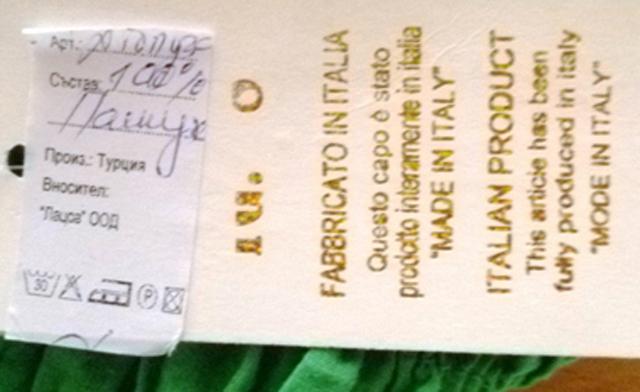 Арт.:
Състав: 100%
Памук
Произ.: Турция
Вносител:
"Лацоа" ООД
30
P
FABBRICATO IN ITALIA
Questo capo è stato
prodotto interamente in italia
"MADE IN ITALY"
ITALIAN PRODUCT
This article has been
fully produced in italy
"MODE IN ITALY"